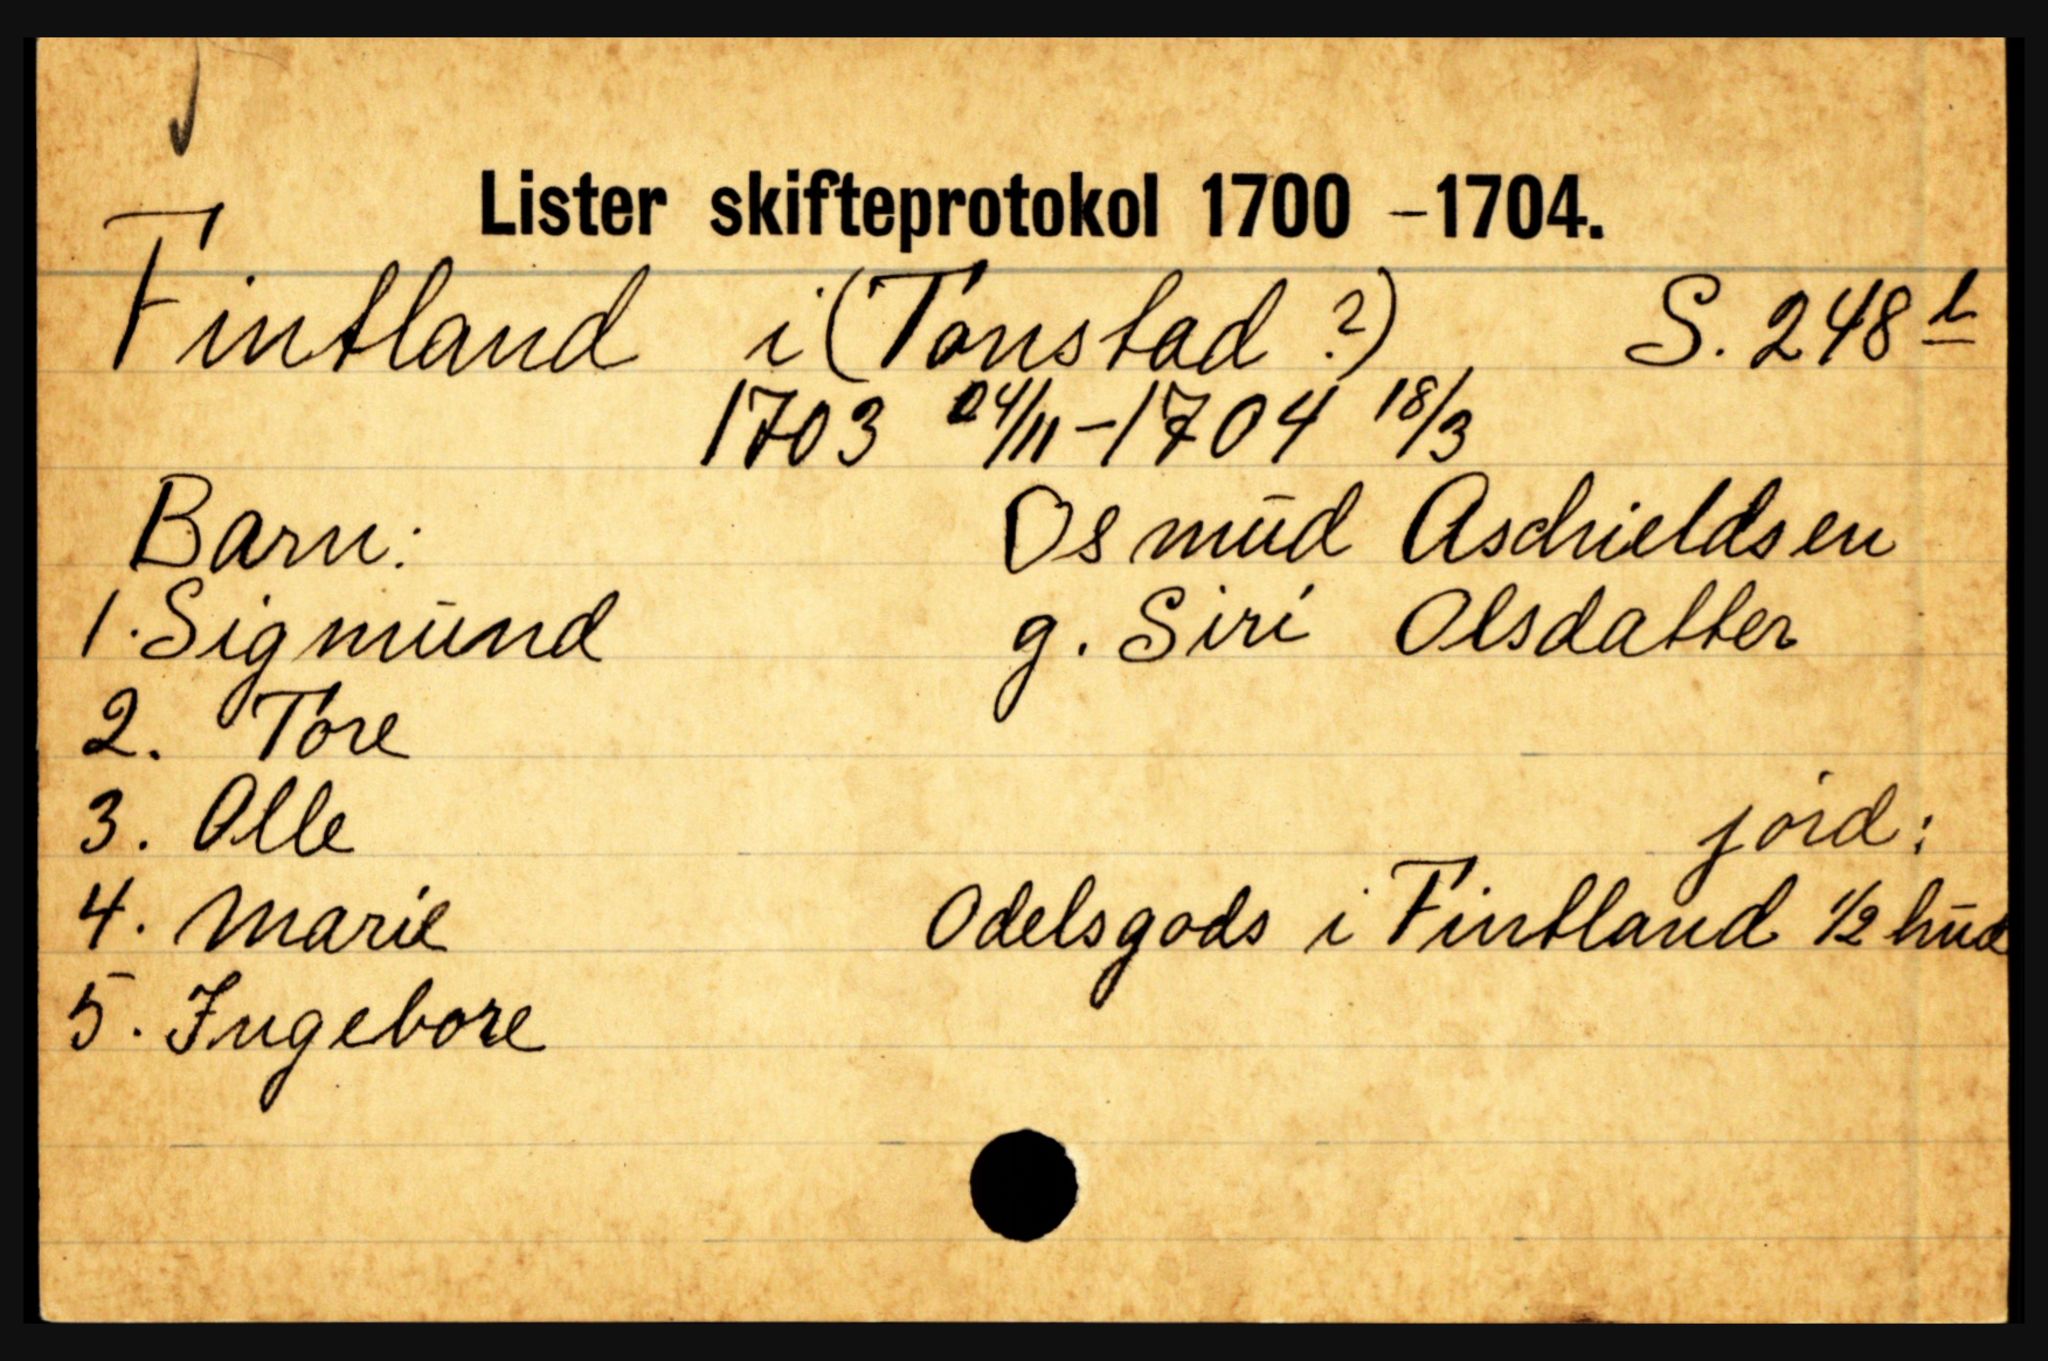 Lister skifteprotokol 1700 –1704.
Fintland i (Tonstad ?) S. 248 b
1703 24/11 – 1704 18/3
Barn: Osmūd Aschieldsen
1. Sigmūnd g. Siri Olsdatter
2. Tore
3. Olle jord:
4. Marie Odelsgods i Fintland 1/2 hūd
5. Ingebore